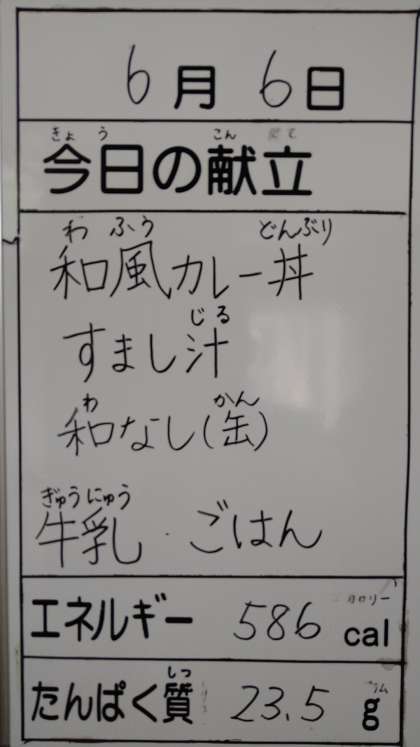 6月6日
きょう こん
今日の献立
わ ふう どんぶり
和風カレー丼
じる
すまし汁
わ かん
和なし(缶)
ぎゅうにゅう
牛乳・ごはん
カロリー
エネルギー 586 cal
しつ
たんぱく質 23.5 g